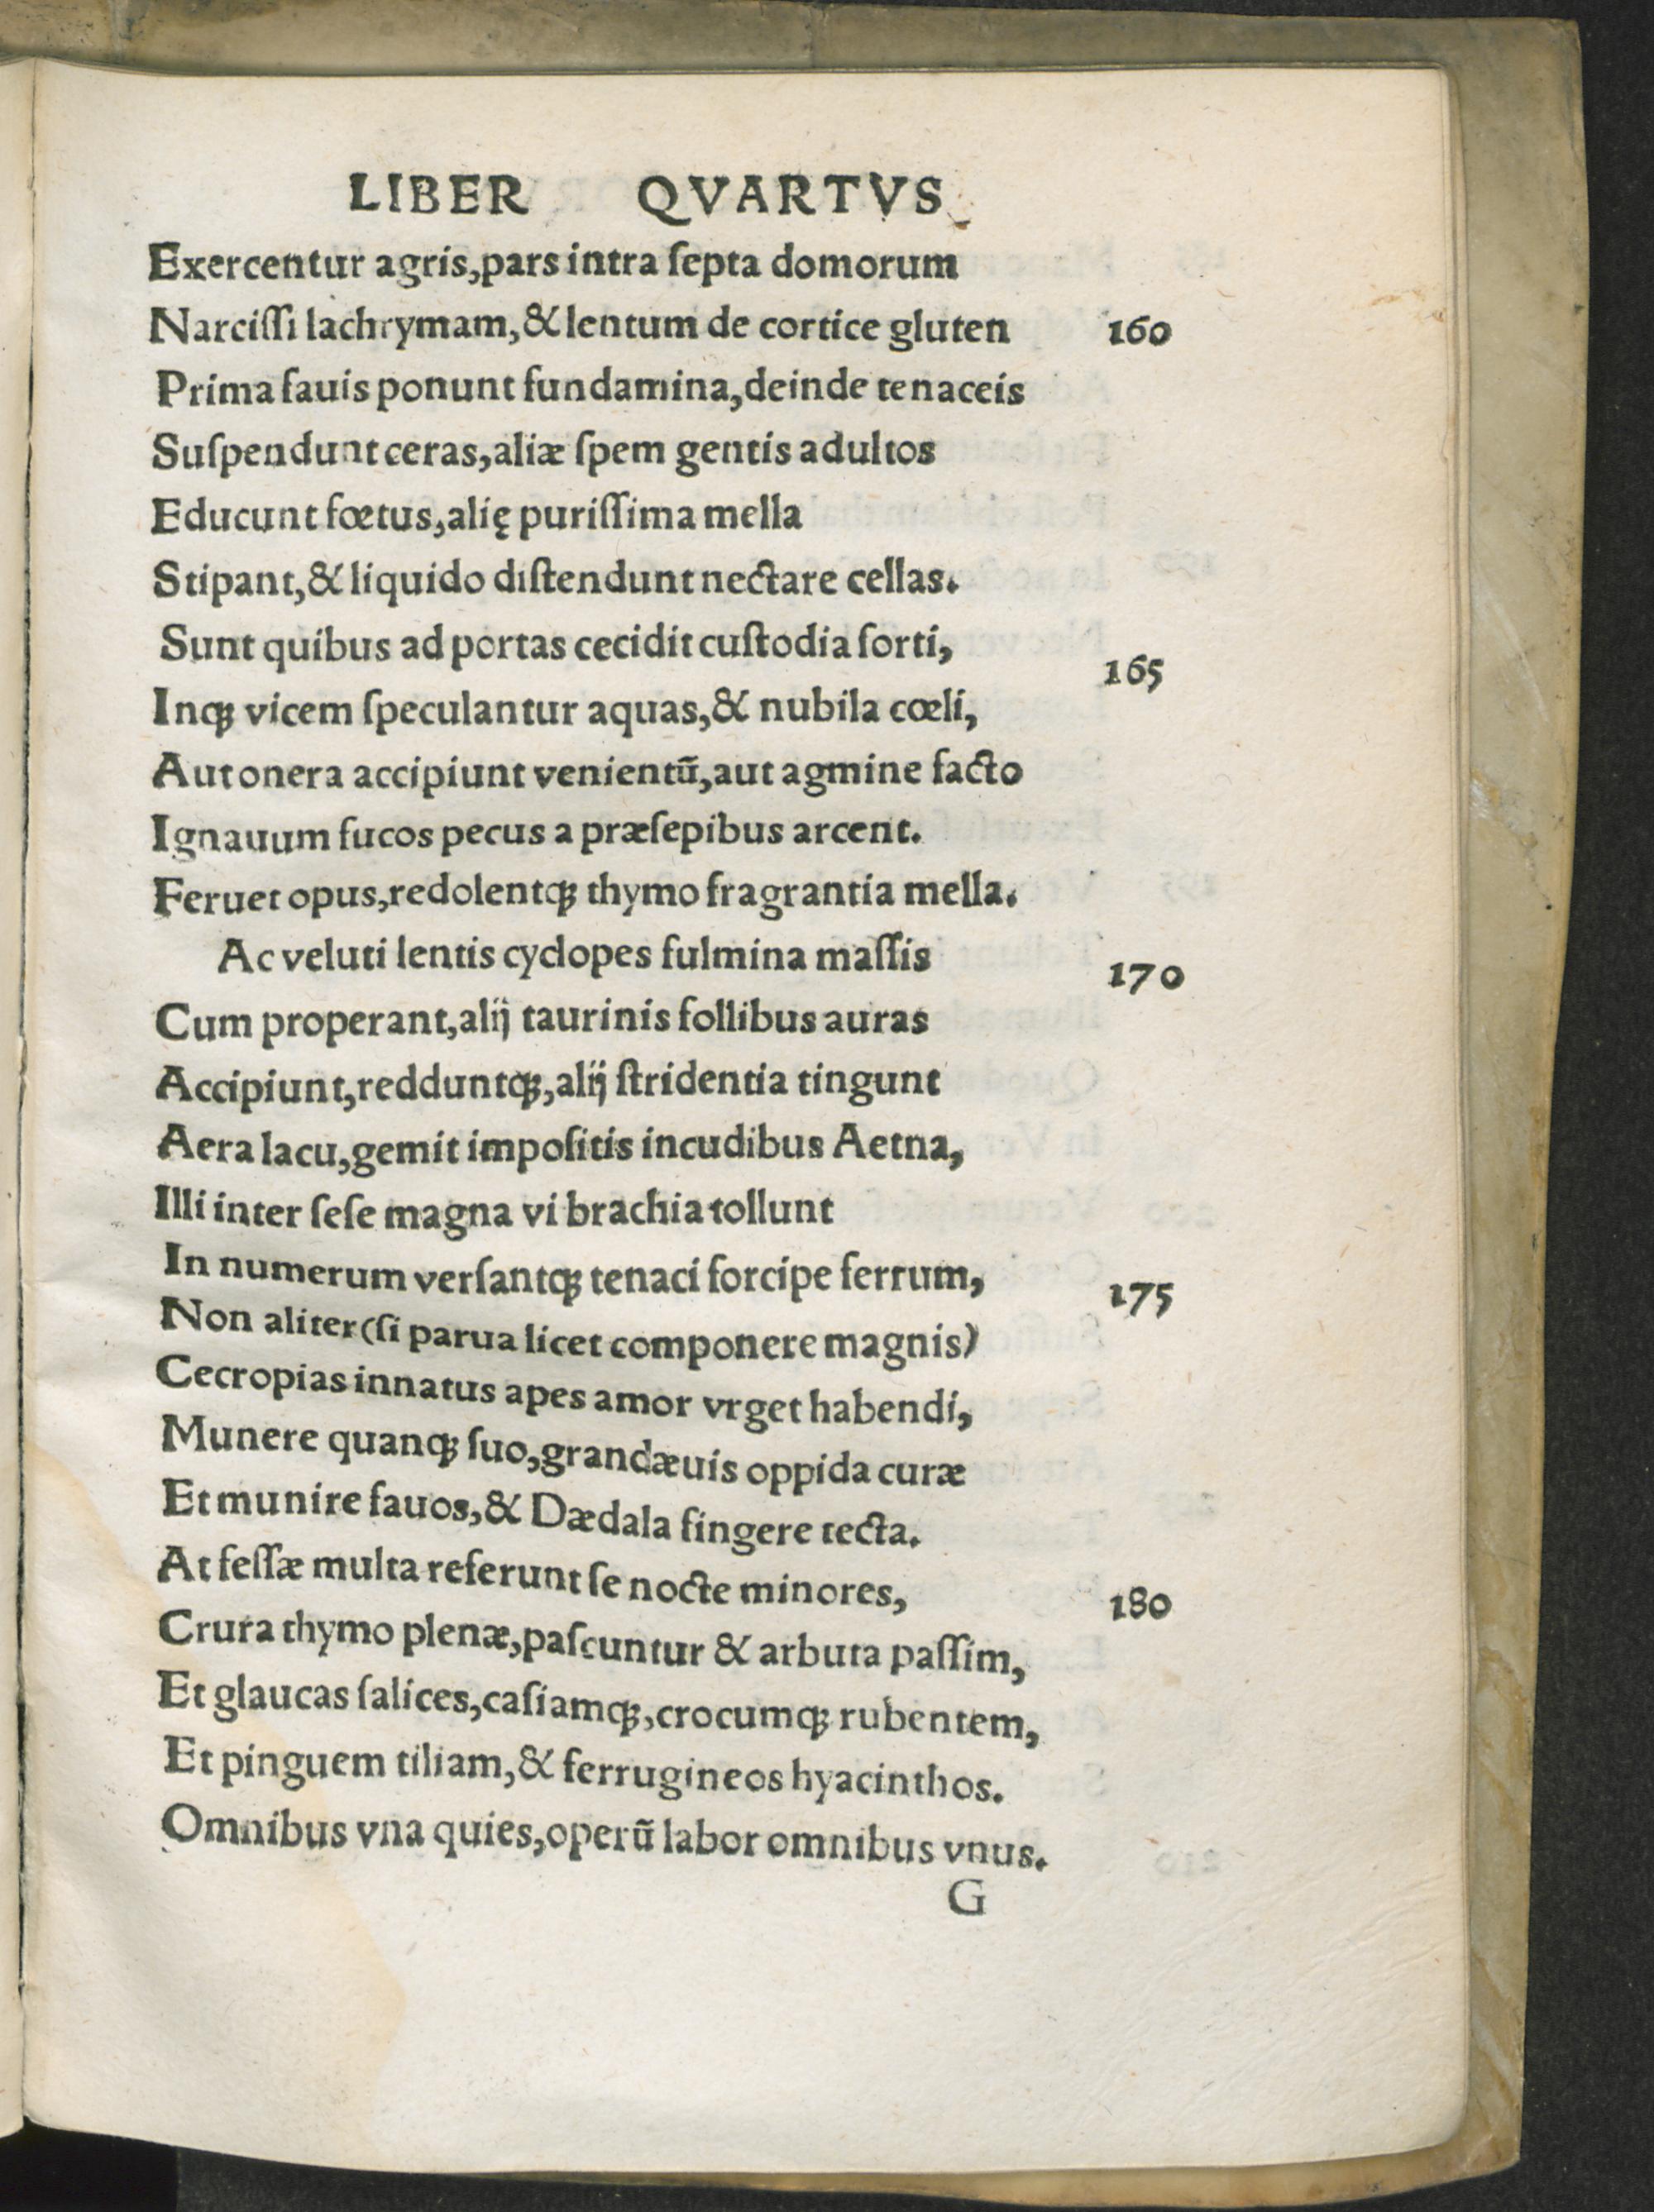 LIBER QVARTVS
Exercentur agris,pars intra ſepta domorum
Narciſſi lachrymam,& lentum de cortice gluten 160
Prima fauis ponunt fundamina,deinde tenaceis
Suſpendunt ceras,aliæ ſpem gentis adultos
Educunt fœtus,alię puriſſima mella
Stipant,& liquido diſtendunt nectare cellas.
Sunt quibus ad portas cecidit cuſtodia ſorti, 165
Inqꝫ vicem ſpeculantur aquas,& nubila cœli,
Aut onera accipiunt venientū,aut agmine facto
Ignauum fucos pecus a præſepibus arcent.
Feruet opus,redolentqꝫ thymo fragrantia mella.
Ac veluti lentis cyclopes fulmina maſſis 170
Cum properant,alij taurinis follibus auras
Accipiunt,redduntqꝫ,alij ſtridentia tingunt
Aera lacu,gemit impoſitis incudibus Aetna,
Illi inter ſeſe magna vi brachia tollunt
In numerum verſantqꝫ tenaci forcipe ferrum, 175
Non aliter(ſi parua licet componere magnis)
Cecropias innatus apes amor vrget habendi,
Munere quanqꝫ ſuo,grandæuis oppida curæ
Et munire fauos,& Dædala fingere tecta.
At feſſæ multa referunt ſe nocte minores, 180
Crura thymo plenæ,paſcuntur & arbuta paſſim,
Et glaucas ſalices,caſiamqꝫ,crocumqꝫ rubentem,
Et pinguem tiliam,& ferrugineos hyacinthos.
Omnibus vna quies,operū labor omnibus vnus.
G